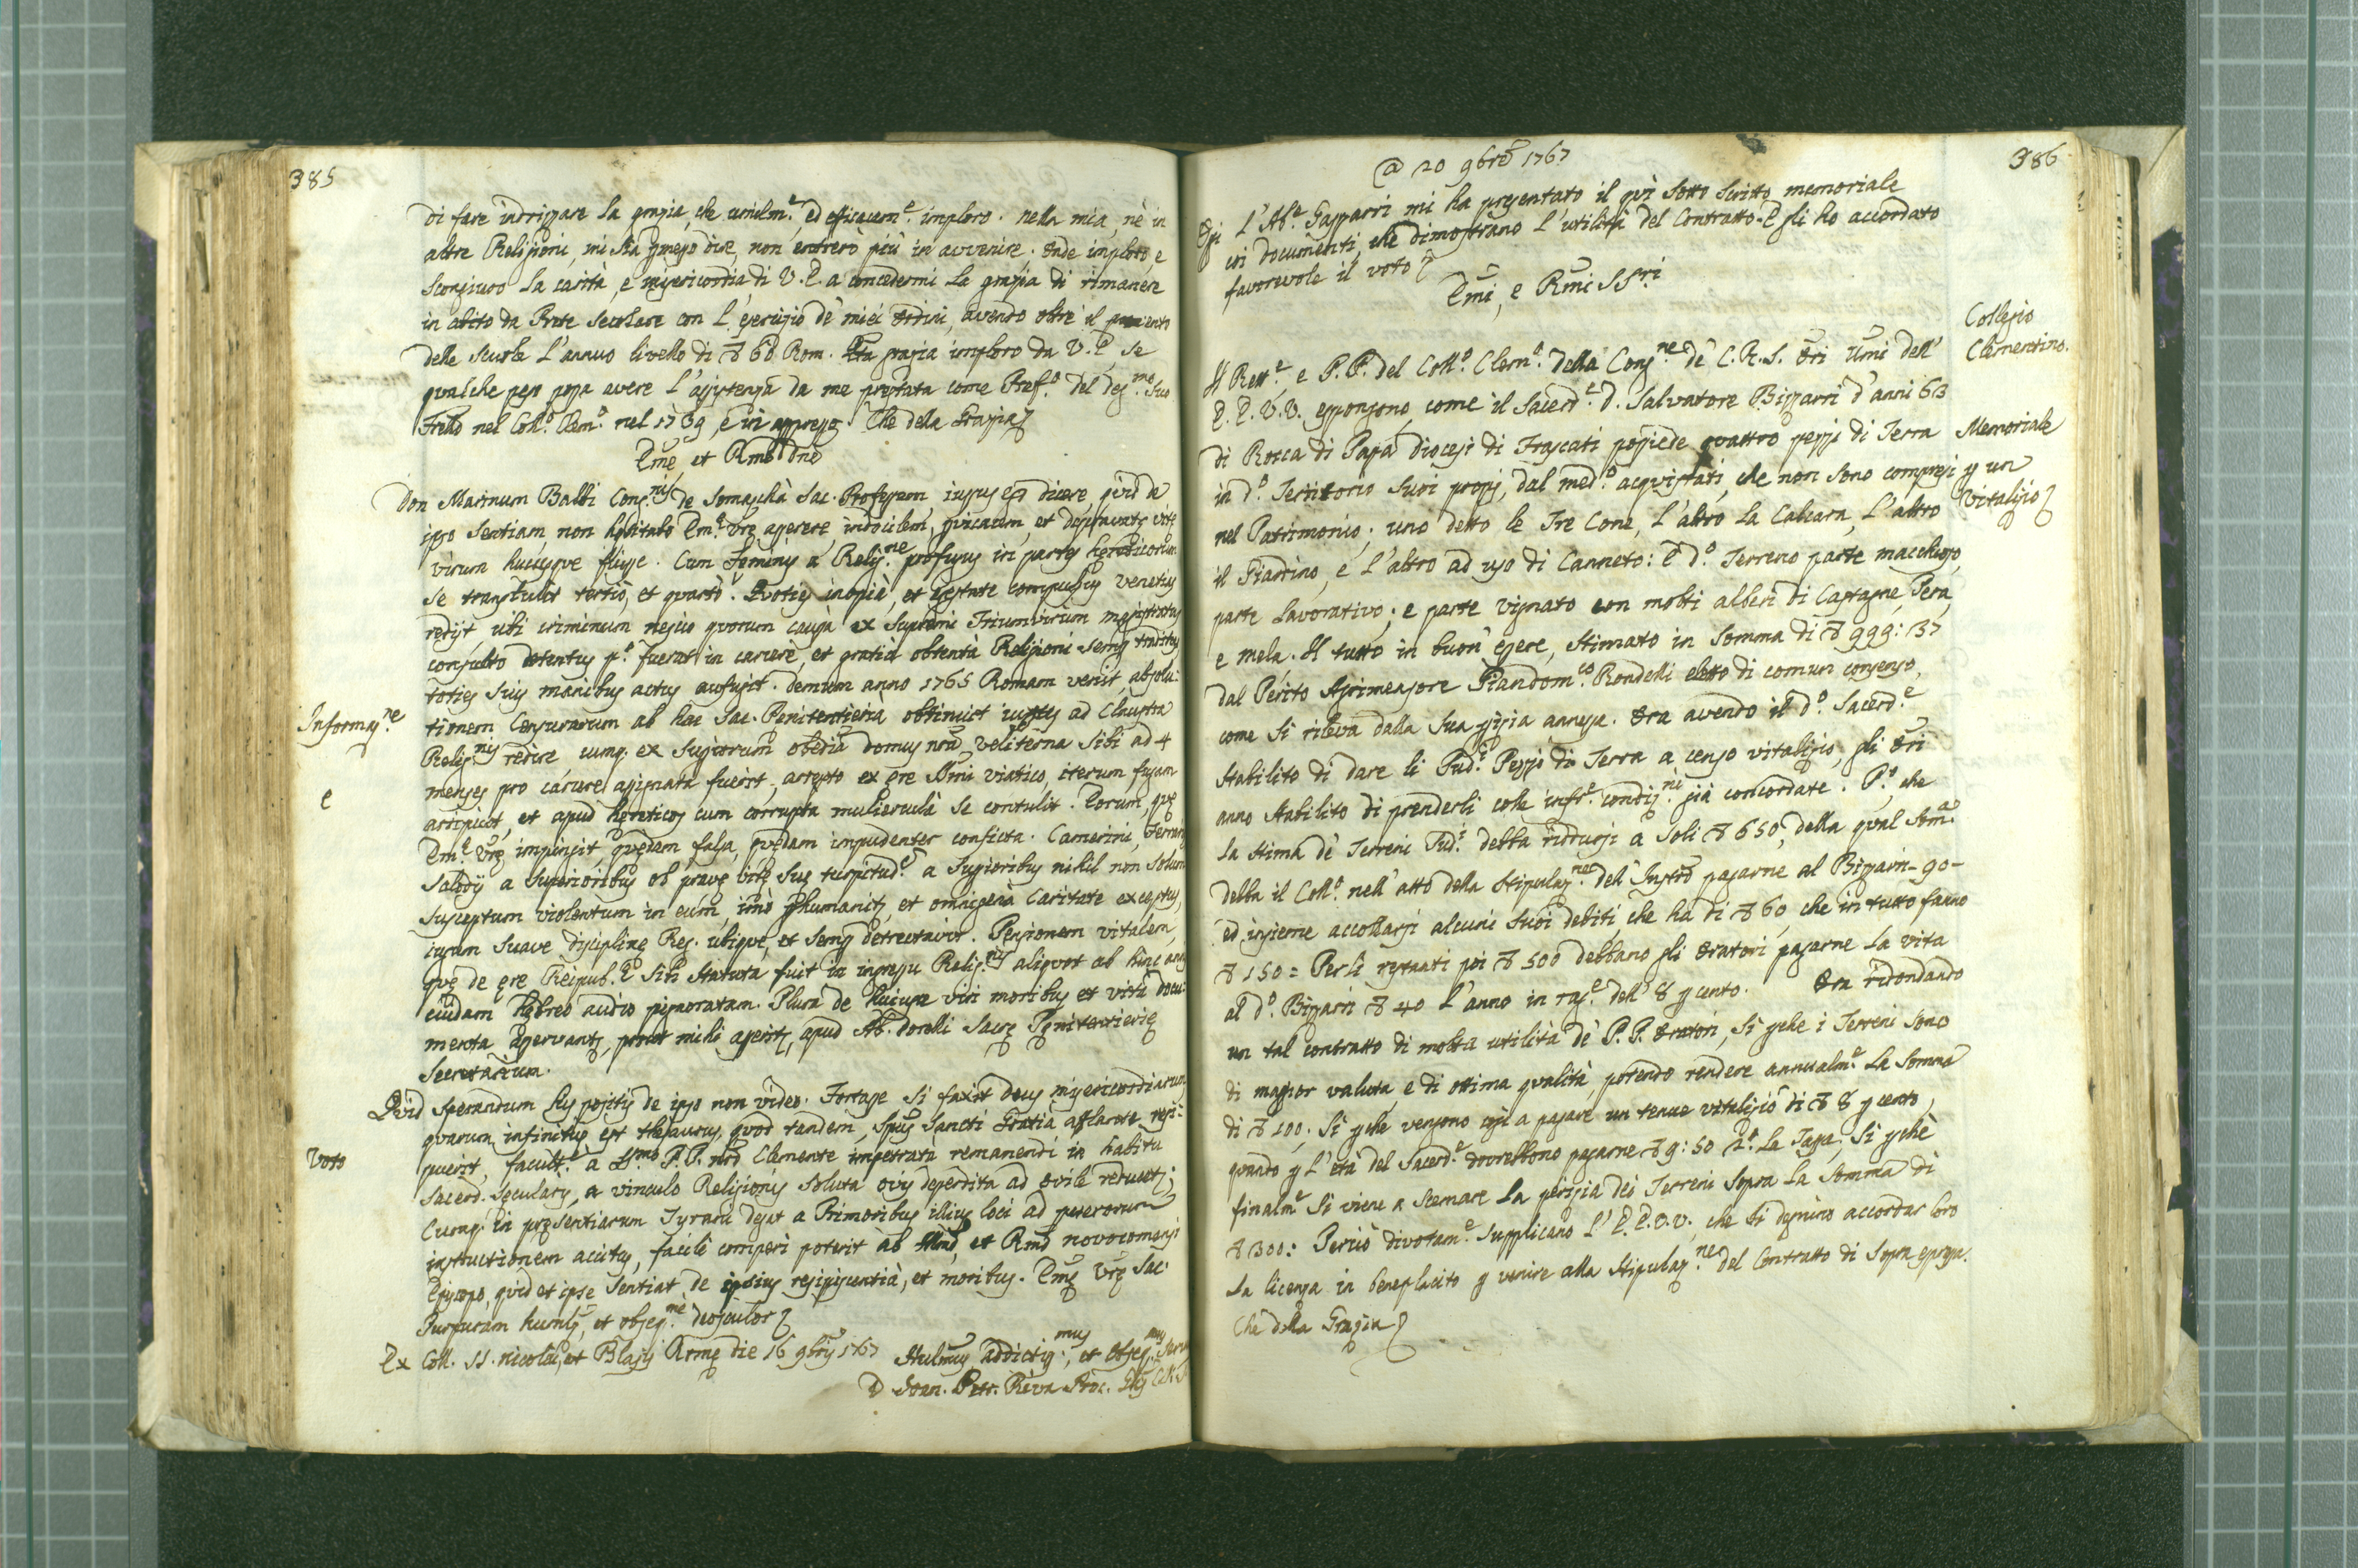 385
di fare indrizzare la grazia, che umilm.e ed efficacem.e imploro. nella mia, nè in
altre Religioni, mi sia permesso dire, non entrerò più in avvenire. Onde imploro, e
scongiuro la carità, e misericordia di V. E. a concedermi la grazia di rimanere
in abito da Prete Secolare con l'esercizio de' miei Ordini, avendo oltre il
delle Scuole l'annuo livello di 60 Rom. grazia imploro da V. E. se
qualche peso possa avere l'assistenza da me prestata come Pref.o del deg.mo suo
Frello nel Coll.o Clem.o nel 1739, e in appresso. Che della Grazia
Eme et Rme Dne
Don Marinum Balbi Cong.nis de Somascha Sac. Professum iussus dicere, quid de
ipso sentiam non hesitabo Em.e Vre asserere, indocilem, pervicacem, et depravate vite
virum hucusque fuisse. Cum Seminis a Relig.ne profugus in partes hereticorum
se transtulit tertiò, et quartò. Quoties inopià, et egestate compulsus Venetias
redijt, ubi criminum nescio quorum causà ex supremi Triumvirum magistratus
consulto detentus p.o fuerat in carcere, et gratià obtentà Religioni semp traditus
toties suis manibus actus aufugit. demum anno 1765 Romam venit, absolu:
tionem Censurarum ab hac Sac. Penitentieria obtinuit iussus ad Claustra
Informaz.ne
Relig.nis redire cumq. ex Superiorum obedia domus nra Veliterna sibi ad 4
menses pro carcere assignata fuerit, arrepto ex ere viatico, iterum fugam
e
arripuit, et apud hereticos cum corrupta mulierculà se contulit. Eorum, que
Em.e Vre impingit, quedam falsa, quedam impudenter conficta. Camerini, Ferrarie
Salodij a Superioribus ob prave vite sue turpitud.e a Superioribus nihil non solum
susceptum violentum in eum, imò perhumanis, et omnigenà Caritate exceptus,
iugum suave discipline Reg. ubique, et semp detrectavit. Pensionem vitalem,
que de ere Reipub.e sibi statuta fuit in ingressu Relig.nis aliquot ab hinc annis
cuidam hebreo audio pignoratam. Plura de huiusce viri moribus et vita docu:
menta asservant, prout mihi asserit, apud Ab. Dorelli Sacre Penitentierie
Secretarium.
Quid sperandum his positis de ipso non video. Fortasse si faxit Deus misericordiarum
quarum infinitus est thesaurus, quod tandem, Spus Sancti Gratia afflante resi:
Voto
puerit, facult.e a Ssmo P. P. nro Clemente impetratà remanendi in habitu
Sacerd. secularis, a vinculo Religionis soluta ovis deperdita ad ovile revert;
Cumq. in presentiarum degat a Primoribus illius loci ad puerorum
instructionem acitus, facile comperi poterit ab Illmo, et Rmo novocomensi
Episcopo, quid et ipse sentiat de ipsius resipiscentià, et moribus. Eme Vre Sac.
Purpuram humil, et obseq.me deosculor
Ex Coll. SS. Nicolai, et Blasij Rome die 16 9bris 1767 Hulmus, addictis.mus, et obseq.mus Servus
D Joan. Petr. Riva Proc. Glis C.R.S.
386
@ 20 9bre 1767
Oggi l'Ab.e Gasparri mi ha presentato il quì sotto scritto memoriale
coi documenti, che dimostrano l'utilità del Contratto. E gli ho accordato
favorevole il voto
Emi, e Rmi SSri
Collegio
Clementino.
Il Rett.e e P. P. del Coll.o Clem.o della Cong.ne de' C. R. S. Ori Umi dell'
E. E. V. V. espongono, come il Sacerd.e D. Salvatore Bizzarri d'anni 63
di Rocca di Papa diocesi di Frascati possiede quattro pezzi di Terra
Memoriale
in d.o Territorio suoi propri, dal med.o acquistati, che non sono compresi
p un
nel Patrimonio; uno detto le Tre Cone, l'altro la Calcara, l'altro
Vitalizio
il Giardino, e l'altro ad uso di Canneto: E d.o Terreno parte macchioso,
parte lavorativo; e parte vignato con molti alberi di Castagne, Pera,
e mela. Il tutto in buon' essere, stimato in somma di 999: 37
dal Perito Agrimensore Giandom.co Rondelli eletto di comun consenso,
come si rileva dalla sua perizia annessa. Ora avendo il d.o Sacerd.e
stabilito di dare li Sud.i Pezzi di Terra a censo vitalizio, gli Ori
anno stabilito di prenderli colle infr.e condiz.ni già concordate. P.o che
la stima de' Terreni Sud.i debba ridursi a soli 650, della qual som.a
debba il Coll.o nell'atto della stipulaz.ne dell'Instro pagarne al Bizzarri - 90 -
ed insieme accollarsi alcuni suoi debiti, che ha di 60, che in tutto fanno
150 = Per li restanti poi 500 debbano gli Oratori pagarne la vita
al d.o Bizzarri 40 l'anno in rag.e dell' 8 p cento. Ora ridondando
un tal contratto di molta utilità de' P. P. Oratori, sì pche i Terreni sono
di maggior valuta, e di ottima qualità, potendo rendere annualm.e la somma
di 100; Sì pche vengono così a pagare un tenue vitalizio di 8 p cento,
quando p l'età del Sacerd.e dovrebbono pagarne 9: 50 la Tassa; Sì pchè
finalm.e si viene a scemare la perizia dei Terreni sopra la somma di
300: Perciò divotam.e supplicano l' E. E. V. V., che si degnino accordar loro
la licenza in beneplacito p venire alla stipulaz.ne del Contratto di sopra espresso.
Che della Grazia